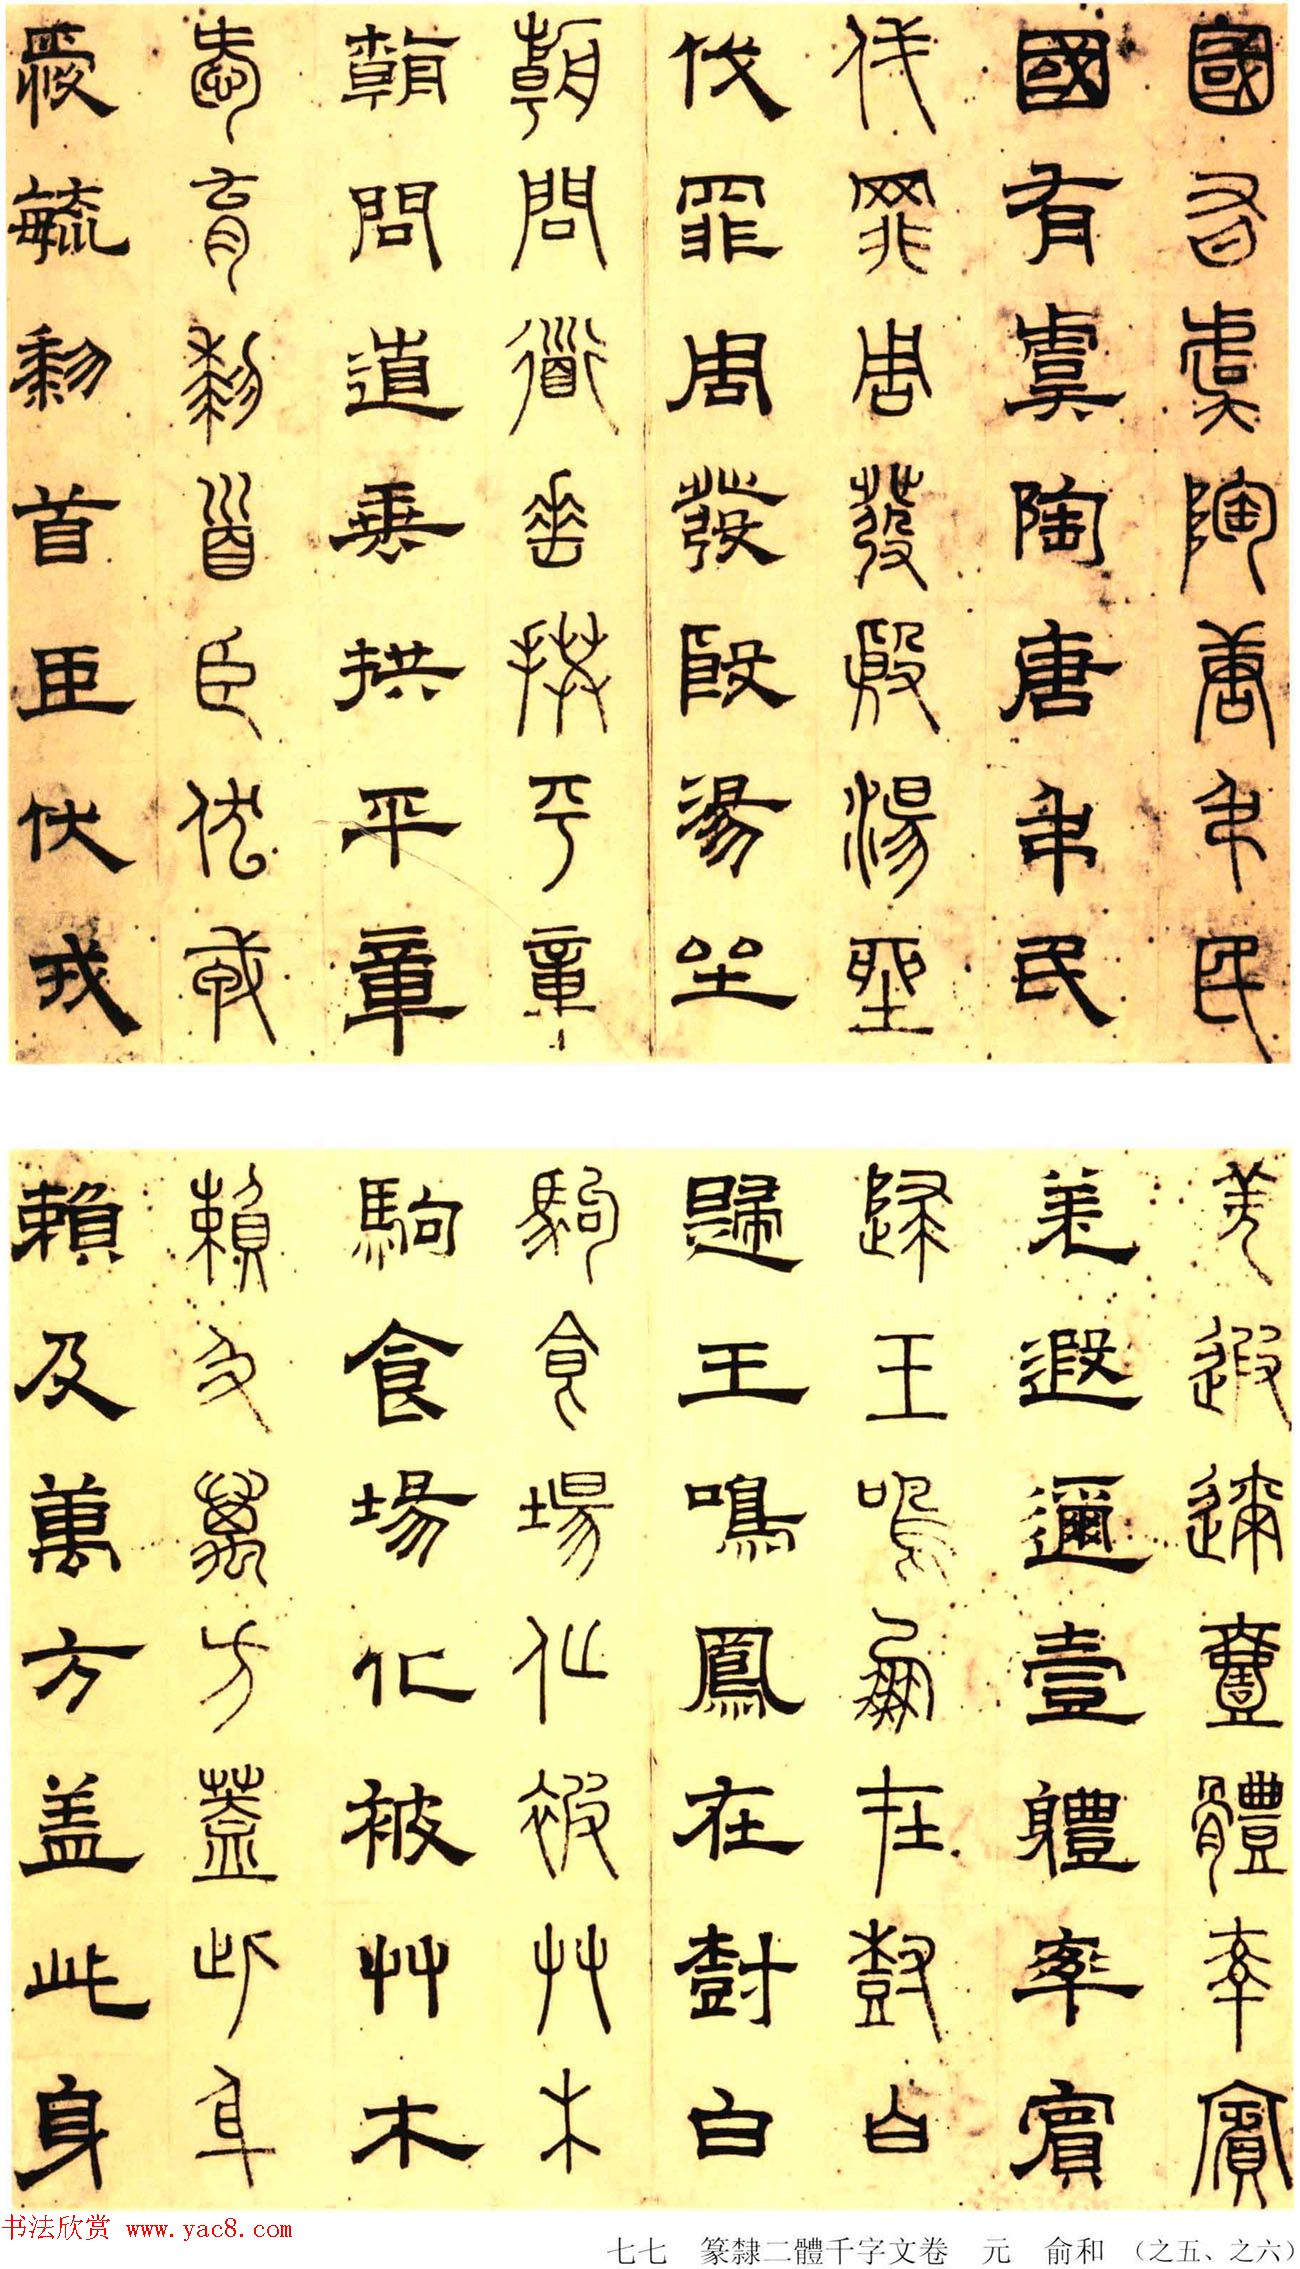 國有虞陶唐弔民
國有虞陶唐弔民
伐罪周發殷湯坐
伐罪周發殷湯坐
朝問道垂拱平章
朝問道垂拱平章
愛育黎首臣伏戎
愛育黎首臣伏戎
羌遐邇壹體率賓
羌遐邇壹體率賓
歸王鳴鳳在樹白
歸王鳴鳳在樹白
駒食場化被艸木
駒食場化被艸木
賴及萬方蓋此身
賴及萬方盖此身
书法欣赏 www.yac8.com
七七 篆隸二體千字文卷 元 俞和 （之五、之六）